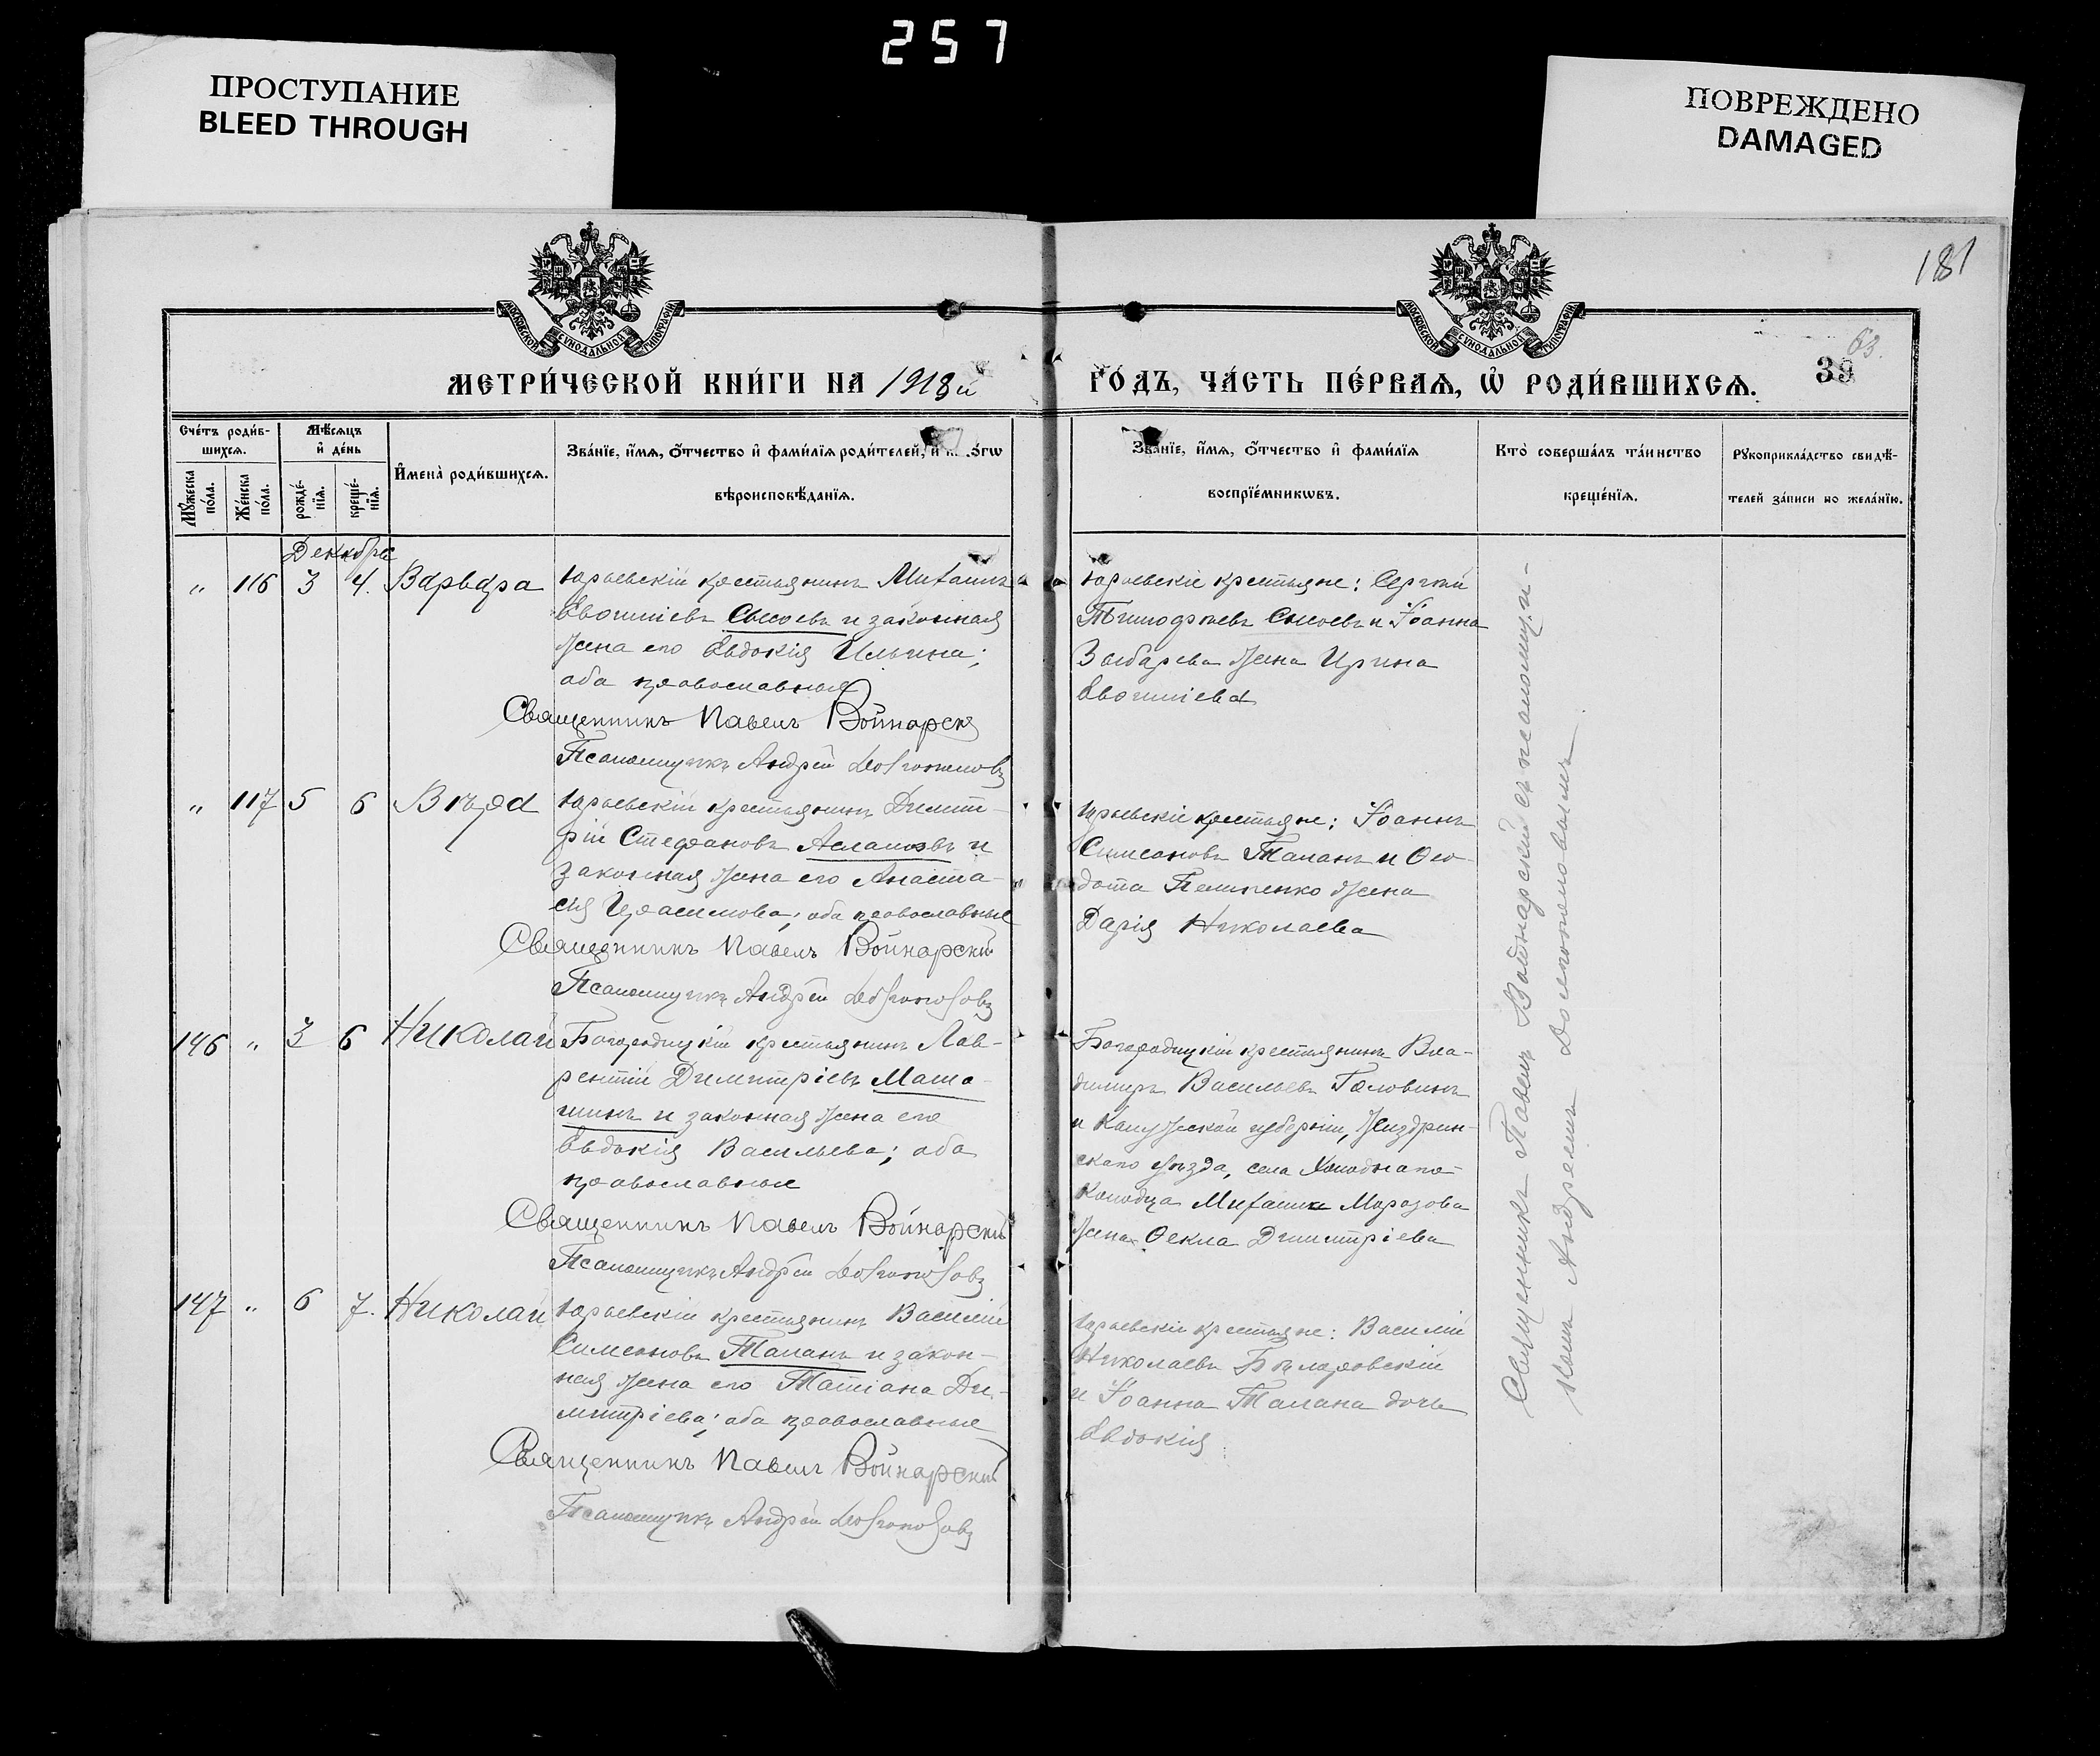 257
ПРОСТУПАНИЕ
BLEED THROUGH
ПОВРЕЖДЕНО
DAMAGED
181
63.
39
МЕТРИ́ЧЕСКОЙ КНИ́ГИ НА 1918й
ГО́ДЪ, ЧА́СТЬ ПЕ́РВАѦ, Ѿ РОДИ́ВШИХСѦ.
Сче́тъ роди́в-
шихсѧ.
Мꙋ́жеска по́ла.
Же́нска по́ла.
Мѣ́сѧцъ и҆ де́нь
рожде́-
нїѧ.
креще́-
нїѧ.
И҆мена̀ роди́вшихсѧ.
Зва́нїе, и҆́мѧ, ѻ҆́тчество и҆ фами́лїѧ роди́телей, и҆
вѣроисповѣ́данїѧ.
Зва́нїе, и҆́мѧ, ѻ҆́тчество и҆ фами́лїѧ
воспрїе́мникѡвъ.
Кто̀ соверша́лъ та́инство
креще́нїѧ.
Рꙋкоприкла́дство свидѣ́-
телей за́писи по жела́нїю.
Декабрь
„ 116 3 4. Варвара
Юрьевскій крестьянинъ Михаилъ
Евѳиміевъ Сысоевъ и законная
жена его Евдокія Ильина;
оба православные
Священникъ Павелъ Войнарскій
Псаломщикъ Андрей Долгополовъ
Юрьевскіе крестьяне: Сергѣй
Тимоѳеевъ Сысоевъ и Іоанна
жена Ирина
Евѳиміева
„ 117 5 6 Вѣра
Юрьевскій крестьянинъ Димит-
рій Стефановъ Аслановъ и
законная жена его Анаста-
сія Герасимова; оба православные
Священникъ Павелъ Войнарскій
Псаломщикъ Андрей Долгополовъ
Юрьевскіе крестьяне: Іоаннъ
Симеоновъ Таланъ и Ѳео-
дота жена
Дарія Николаева
146 „ 3 6 Николай
Богородицкій крестьянинъ Лав-
рентій Димитріевъ Мата-
шинъ и законная жена его
Евдокія Васильева; оба
православные
Священникъ Павелъ Войнарскій
Псаломщикъ Андрей Долгополовъ
Богородицкій крестьянинъ Вла-
диміръ Васильевъ Головинъ
и Калужской губерніи, Жиздрин-
скаго уѣзда, села Холоднаго
Колодца Михаила Морозова
жена Ѳекла Димитріева
147 „ 6 7. Николай
Юрьевскій крестьянинъ Василій
Симеоновъ Таланъ и закон-
ная жена его Татіана Ди-
митріева; оба православные
Священникъ Павелъ Войнарскій
Псаломщикъ Андрей Долгополовъ
Юрьевскіе крестьяне: Василій
Николаевъ
и Іоанна Талана дочь
Евдокія
Священникъ Павелъ Войнарскій съ псаломщи-
комъ Андреемъ Долгополовымъ